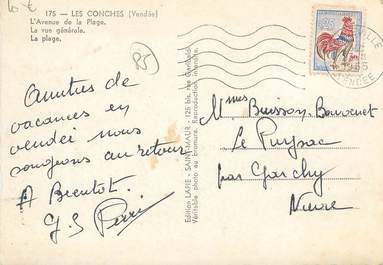 10 €
175 — LES CONCHES (Vendée)
L'Avenue de la Plage.
La vue générale.
La plage.
85
Amitiés de
vacances en
vendée nous
songeons au retour
A Bientot.
Edition LAPIE - SAINT-MAUR - 125 bis, rue Garibaldi
Véritable photo au bromure. Reproduction interdite
Mmes Buisson-Bonvenet
Le Puysac
par Garchy
Nièvre